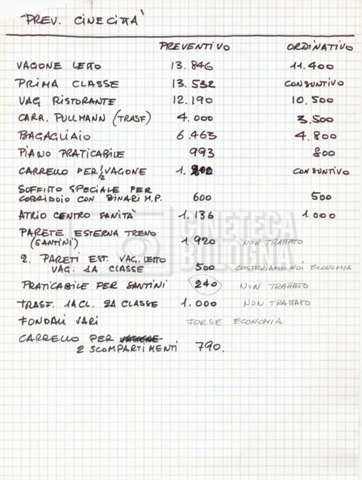 PREV. CINECITTÀ
PREVENTIVO ORDINATIVO
VAGONE LETTO 13.846 11.400
PRIMA CLASSE 13.532 CONSUNTIVO
VAG. RISTORANTE 12.190 10.500
CARR. PULLMANN (TRASF) 4.000 3.500
BAGAGLIAIO 6.463 4.800
PIANO PRATICABILE 993 800
CARRELLO PER 1/2 VAGONE CONSUNTIVO
SOFFITTO SPECIALE PER
CORRIDOIO CON BINARI M.P. 600 500
ATRIO CENTRO SANITÀ 1.136 1000
PARETE ESTERNA TRENO
(SANTINI) 1.920 NON TRATTATO
2. PARETI EST. VAG. LETTO
VAG. 1A CLASSE 500 COSTRUIAMO NOI ECONOMIA
PRATICABILE PER SANTINI 240 NON TRATTATO
TRASF. 1A CL. 2A CLASSE 1.000 NON TRATTATO
FONDALI VARI FORSE ECONOMIA
CARRELLO PER VAGONE
2 SCOMPARTIMENTI 790.
CINETECA
BOLOGNA